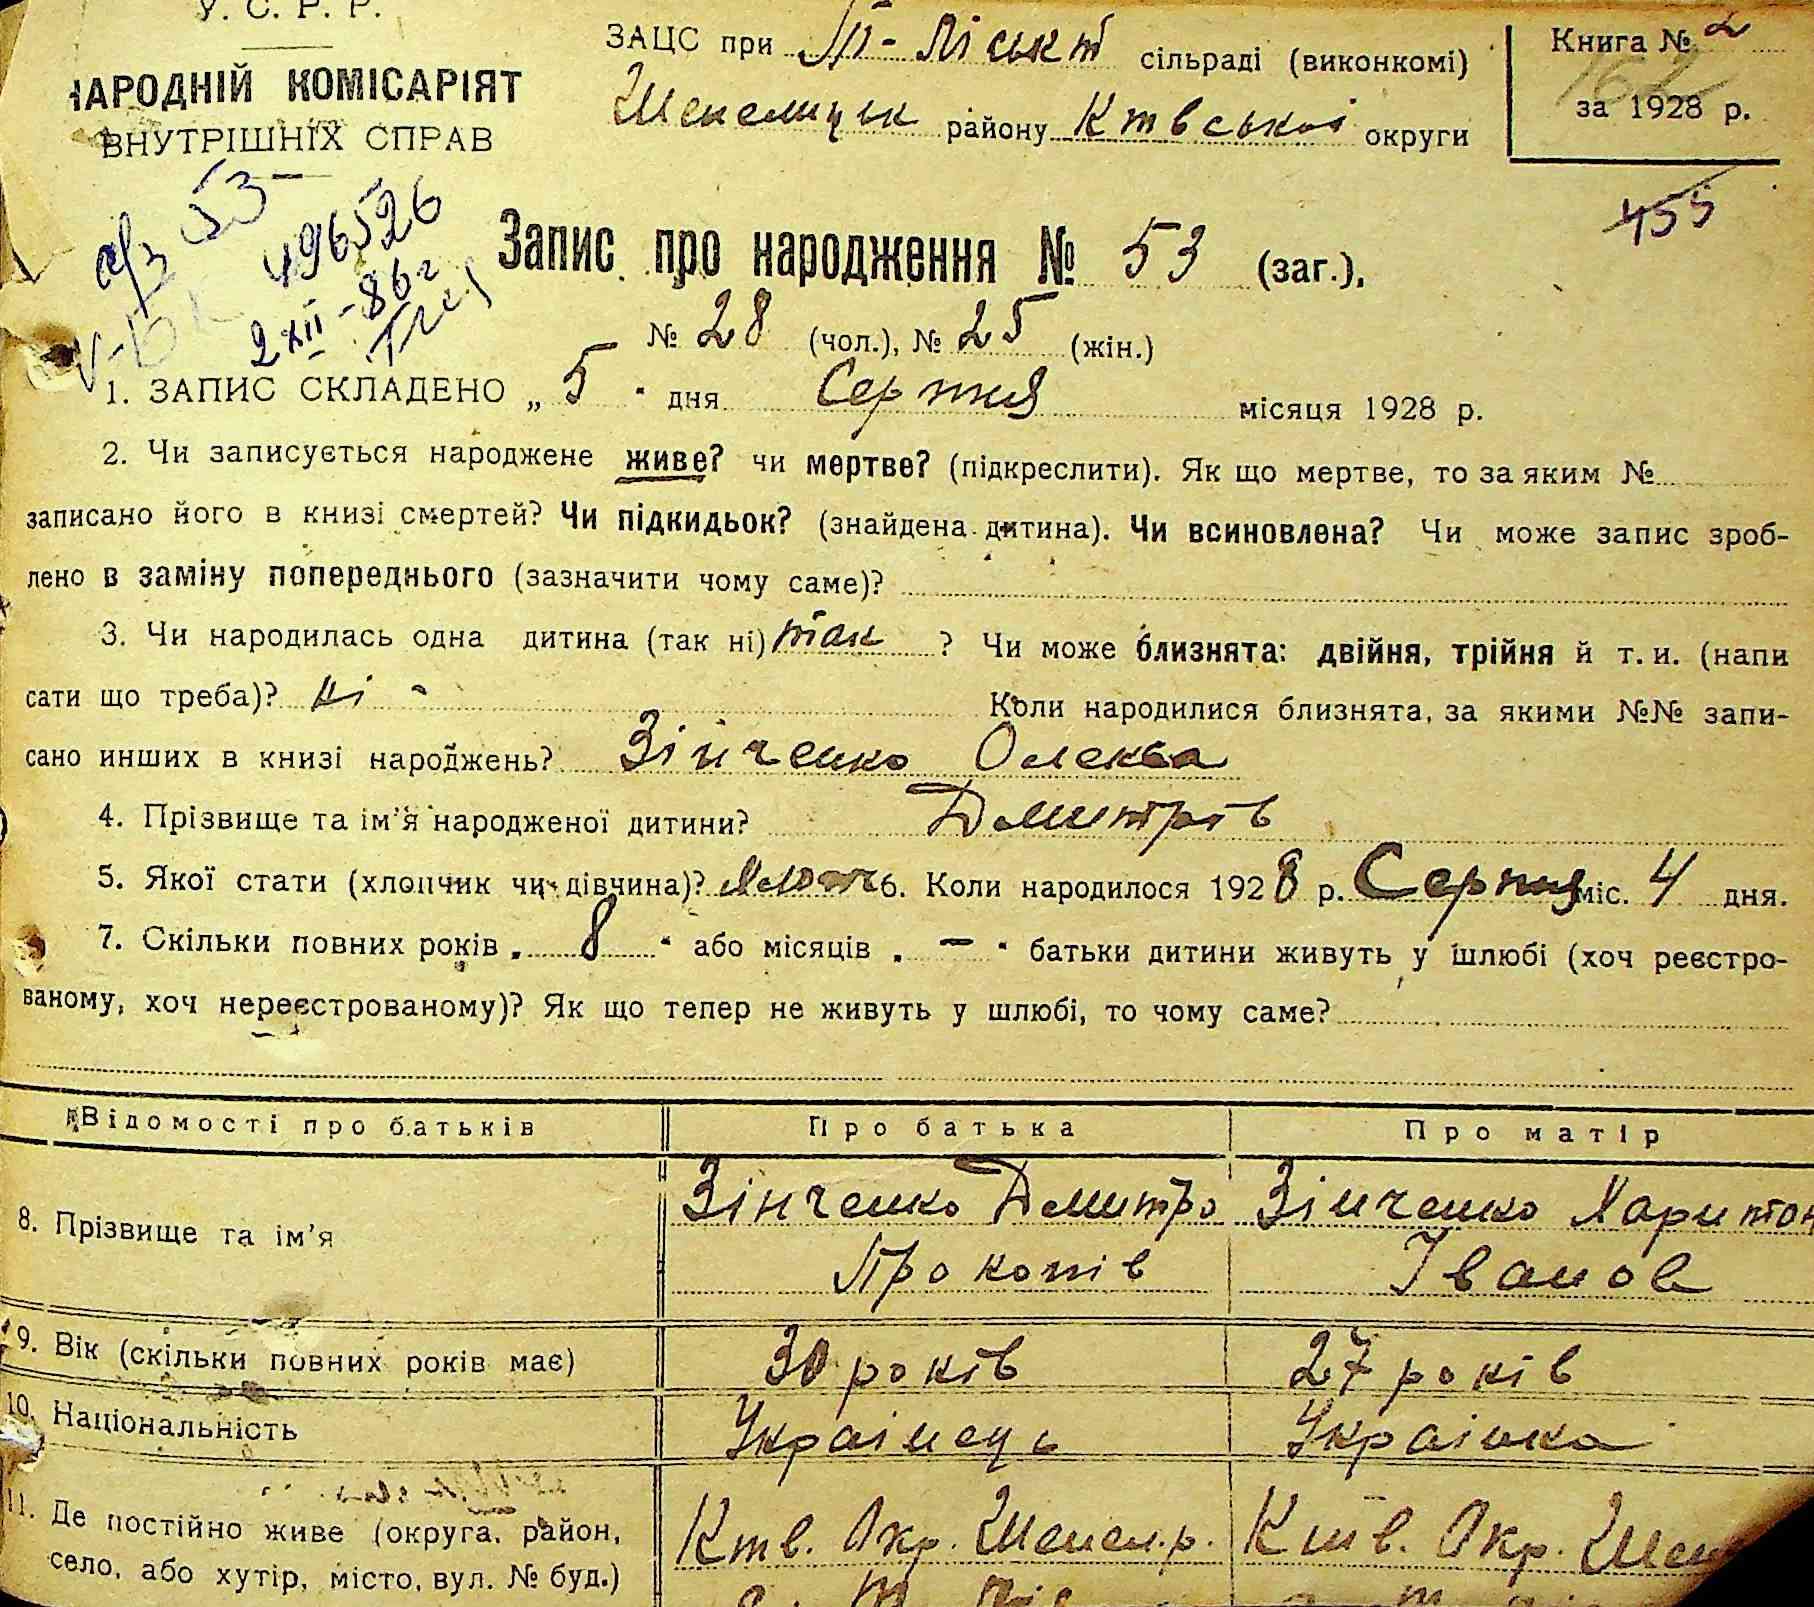 У. С. Р. Р.
НАРОДНІЙ КОМІСАРІЯТ
ВНУТРІШНІХ СПРАВ
ЗАЦС при сільраді (виконкомі)
Шепелицьк району округи
Книга № 2
162
за 1928 р.
455
53
496526
2 XII - 86 г
Запис про народження № 53 (заг.),
№ 28 (чол.), № 25 (жін.)
1. ЗАПИС СКЛАДЕНО „ 5 " дня Серпня місяця 1928 р.
2. Чи записується народжене живе? чи мертве? (підкреслити). Як що мертве, то за яким №
записано його в книзі смертей? Чи підкидьок? (знайдена дитина). Чи всиновлена? Чи може запис зроб-
лено в заміну попереднього (зазначити чому саме)?
3. Чи народилась одна дитина (так ні) так ? Чи може близнята: двійня, трійня й т. и. (напи
сати що треба)? ні - Коли народилися близнята, за якими №№ запи-
сано инших в книзі народжень? Зінченко Олекса
4. Прізвище та ім'я народженої дитини? Дмитрів
5. Якої стати (хлопчик чи дівчина)? 6. Коли народилося 1928 р. Серпня міс. 4 дня.
7. Скільки повних років „ 8 " або місяців „ — " батьки дитини живуть у шлюбі (хоч реєстро-
ваному, хоч нереєстрованому)? Як що тепер не живуть у шлюбі, то чому саме?
Відомості про батьків Про батька Про матір
8. Прізвище та ім'я Зінченко Дмитро Зінченко Харитон
Прокопів Іванов
9. Вік (скільки повних років має) 30 років 27 років
10. Національність Українець Українка
11. Де постійно живе (округа, район, Ктв. Окр. Шепел. р. Ктв. Окр. Шеп
село, або хутір, місто, вул. № буд.)